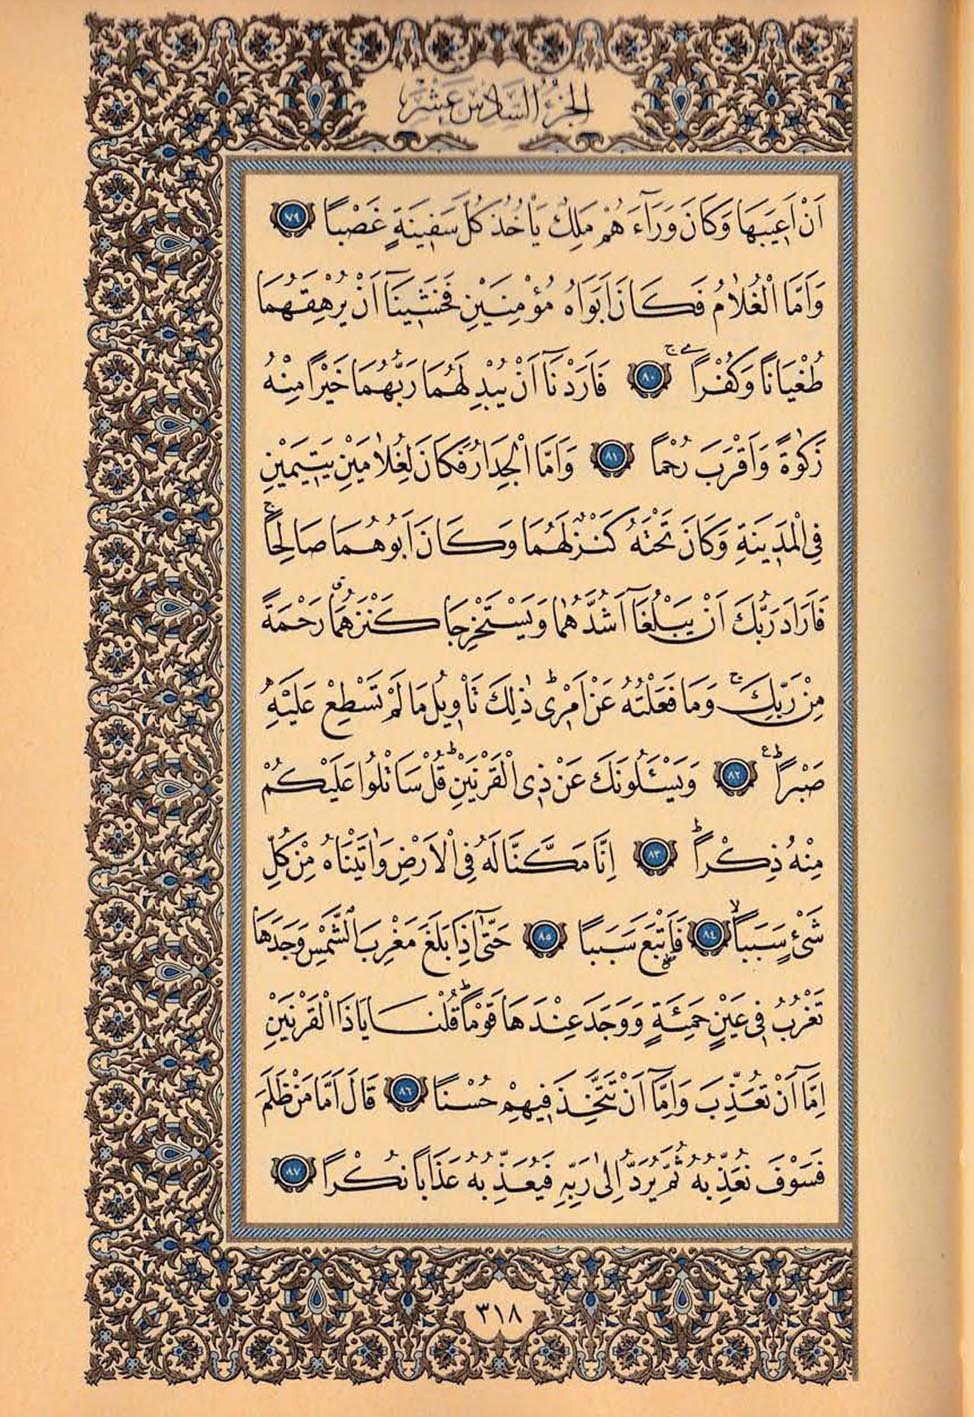 الجزء السادس عشر
اَنْ اَعٖيبَهَا وَكَانَ وَرَٓاءَهُمْ مَلِكٌ يَأْخُذُ كُلَّ سَفٖينَةٍ غَصْبًا ﴿٧٩﴾
وَاَمَّا الْغُلَامُ فَكَانَ اَبَوَاهُ مُؤْمِنَيْنِ فَخَشٖينَٓا اَنْ يُرْهِقَهُمَا
طُغْيَانًا وَكُفْرًاۚ ﴿٨٠﴾ فَاَرَدْنَٓا اَنْ يُبْدِلَهُمَا رَبُّهُمَا خَيْرًا مِنْهُ
زَكٰوةً وَاَقْرَبَ رُحْمًا ﴿٨١﴾ وَاَمَّا الْجِدَارُ فَكَانَ لِغُلَامَيْنِ يَتٖيمَيْنِ
فِي الْمَدٖينَةِ وَكَانَ تَحْتَهُ كَنْزٌ لَهُمَا وَكَانَ اَبُوهُمَا صَالِحًاۚ
فَاَرَادَ رَبُّكَ اَنْ يَبْلُغَٓا اَشُدَّهُمَا وَيَسْتَخْرِجَا كَنْزَهُمَاۗ رَحْمَةً
مِنْ رَبِّكَۚ وَمَا فَعَلْتُهُ عَنْ اَمْرٖيۜ ذٰلِكَ تَأْوٖيلُ مَا لَمْ تَسْطِعْ عَلَيْهِ
صَبْرًاۜ ﴿٨٢﴾ وَيَسْـَٔلُونَكَ عَنْ ذِي الْقَرْنَيْنِۜ قُلْ سَاَتْلُوا عَلَيْكُمْ
مِنْهُ ذِكْرًاۜ ﴿٨٣﴾ اِنَّا مَكَّنَّا لَهُ فِي الْاَرْضِ وَاٰتَيْنَاهُ مِنْ كُلِّ
شَيْءٍ سَبَبًاۙ ﴿٨٤﴾ فَاَتْبَعَ سَبَبًا ﴿٨٥﴾ حَتّٰٓى اِذَا بَلَغَ مَغْرِبَ الشَّمْسِ وَجَدَهَا
تَغْرُبُ فٖي عَيْنٍ حَمِئَةٍ وَوَجَدَ عِنْدَهَا قَوْمًاۜ قُلْنَا يَا ذَا الْقَرْنَيْنِ
اِمَّٓا اَنْ تُعَذِّبَ وَاِمَّٓا اَنْ تَتَّخِذَ فٖيهِمْ حُسْنًا ﴿٨٦﴾ قَالَ اَمَّا مَنْ ظَلَمَ
فَسَوْفَ نُعَذِّبُهُ ثُمَّ يُرَدُّ اِلٰى رَبِّهٖ فَيُعَذِّبُهُ عَذَابًا نُكْرًا ﴿٨٧﴾
٣١٨